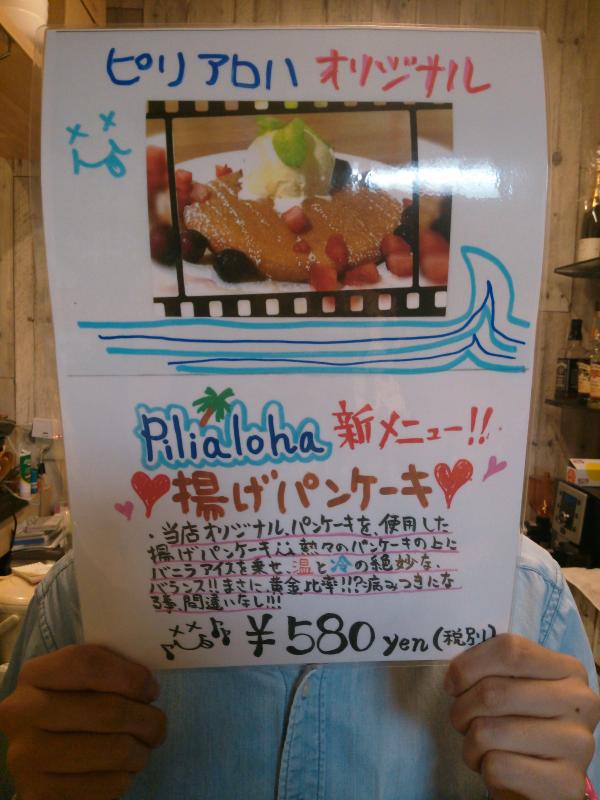 ピリアロハ オリジナル
Pilialoha 新メニュー!!
揚げパンケーキ
・当店オリジナル、パンケーキを、使用した
揚げパンケーキ、、熱々のパンケーキの上に
バニラアイスを乗せ、温と冷の絶妙な、
バランス!!まさに、黄金比率!!?病みつきにな
る事、間違いなし!!!
¥580yen(税別)